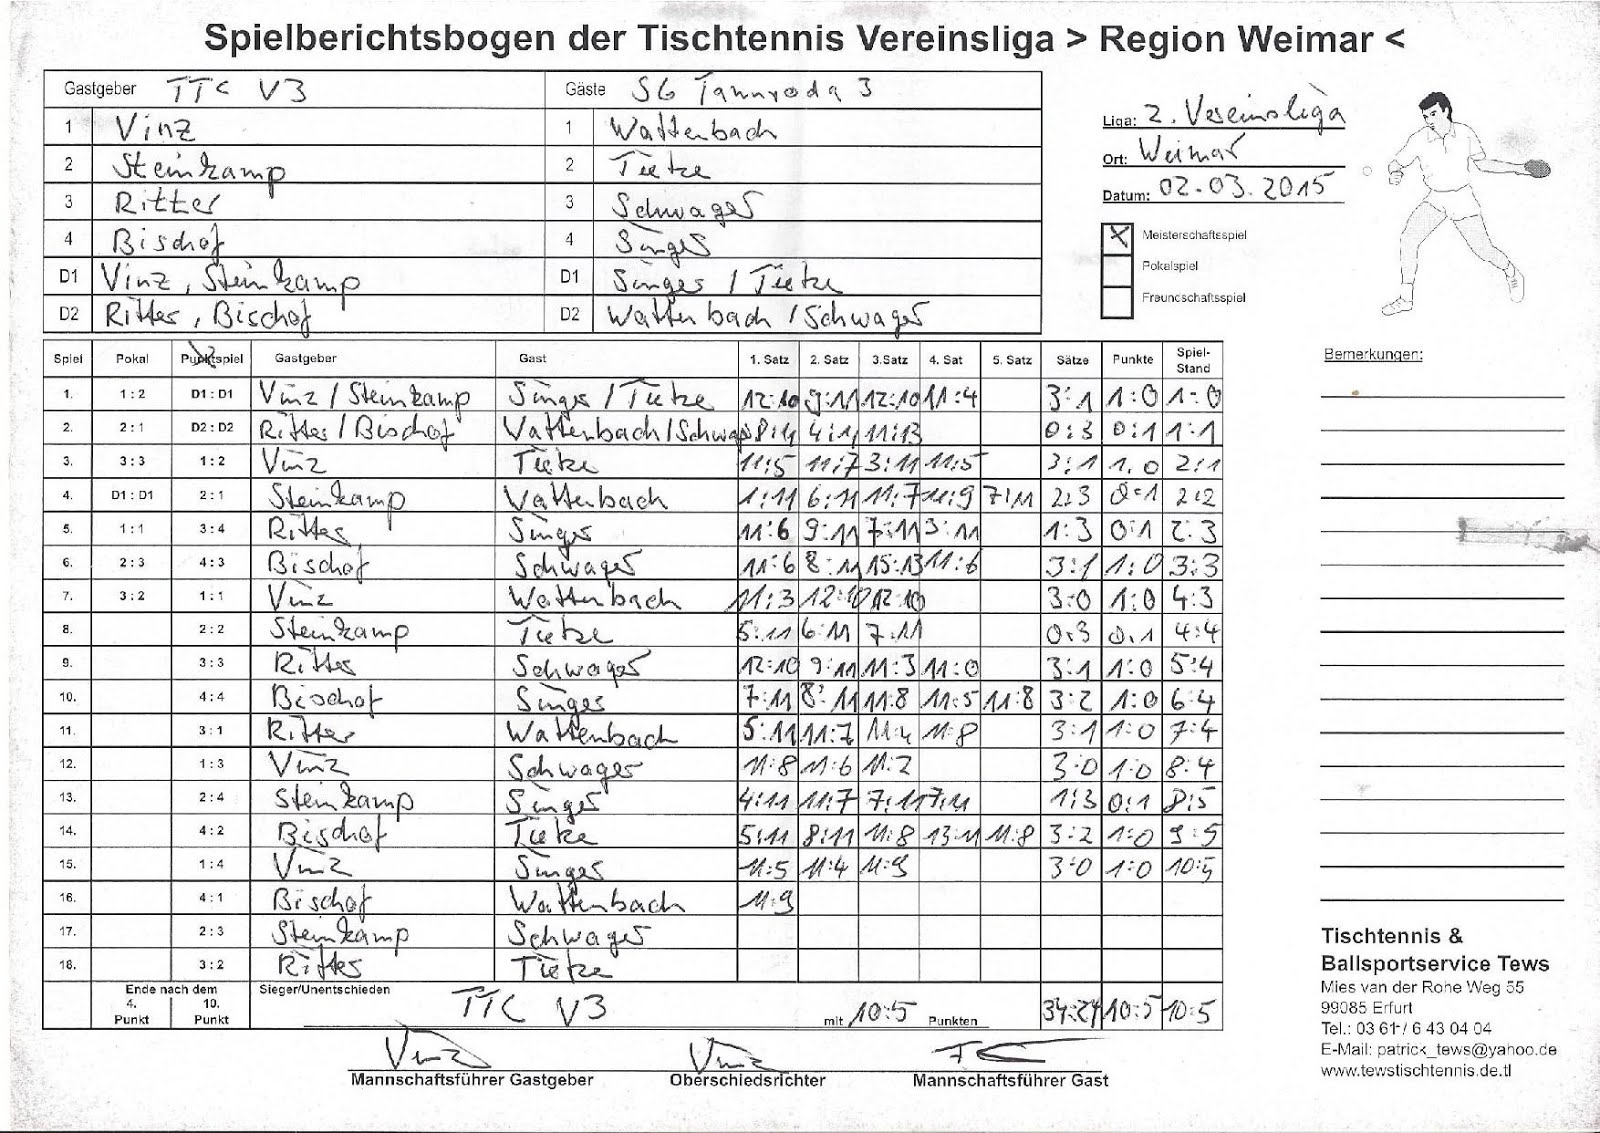 Spielberichtsbogen der Tischtennis Vereinsliga > Region Weimar <
Gastgeber TTC V3 Gäste SG Tannroda 3
1 Vinz 1 Wattenbach
2 Steinkamp 2 Tietze
3 Ritter 3 Schwager
4 Bischof 4 Singer
D1 Vinz, Steinkamp D1 Singer / Tietze
D2 Ritter, Bischof D2 Wattenbach / Schwager
Liga: 2. Vereinsliga
Ort: Weimar
Datum: 02.03.2015
X Meisterschaftsspiel
Pokalspiel
Freundschaftsspiel
Bemerkungen:
Spiel Pokal Punktspiel Gastgeber Gast 1. Satz 2. Satz 3.Satz 4. Sat 5. Satz Sätze Punkte Spiel-Stand
1. 1:2 D1:D1 Vinz / Steinkamp Singer / Tietze 12:10 9:11 12:10 11:4 3:1 1:0 1:0
2. 2:1 D2:D2 Ritter / Bischof Wattenbach / Schwager 4:11 11:13 0:3 0:1 1:1
3. 3:3 1:2 Vinz Tietze 11:5 11:7 3:11 11:5 3:1 1:0 2:1
4. D1:D1 2:1 Steinkamp Wattenbach 1:11 6:11 11:7 11:9 7:11 2:3 0:1 2:2
5. 1:1 3:4 Ritter Singer 11:6 9:11 7:11 3:11 1:3 0:1 2:3
6. 2:3 4:3 Bischof Schwager 11:6 8:11 15:13 11:6 3:1 1:0 3:3
7. 3:2 1:1 Vinz Wattenbach 11:3 12:10 12:10 3:0 1:0 4:3
8. 2:2 Steinkamp Tietze 5:11 6:11 7:11 0:3 0:1 4:4
9. 3:3 Ritter Schwager 12:10 9:11 11:3 11:0 3:1 1:0 5:4
10. 4:4 Bischof Singer 7:11 8:11 11:8 11:5 11:8 3:2 1:0 6:4
11. 3:1 Ritter Wattenbach 5:11 11:7 11:4 11:8 3:1 1:0 7:4
12. 1:3 Vinz Schwager 11:8 11:6 11:2 3:0 1:0 8:4
13. 2:4 Steinkamp Singer 4:11 11:7 7:11 7:11 1:3 0:1 8:5
14. 4:2 Bischof Tietze 5:11 8:11 11:8 13:11 11:8 3:2 1:0 9:5
15. 1:4 Vinz Singer 11:5 11:4 11:9 3:0 1:0 10:5
16. 4:1 Bischof Wattenbach 11:9
17. 2:3 Steinkamp Schwager
18. 3:2 Ritter Tietze
Ende nach dem
4. Punkt 10. Punkt
Sieger/Unentschieden TTC V3 mit 10:5 Punkten 34:24 10:5 10:5
Vinz Vinz
Mannschaftsführer Gastgeber Oberschiedsrichter Mannschaftsführer Gast
Tischtennis &
Ballsportservice Tews
Mies van der Rohe Weg 55
99085 Erfurt
Tel.: 03 61 / 6 43 04 04
E-Mail: patrick_tews@yahoo.de
www.tewstischtennis.de.tl